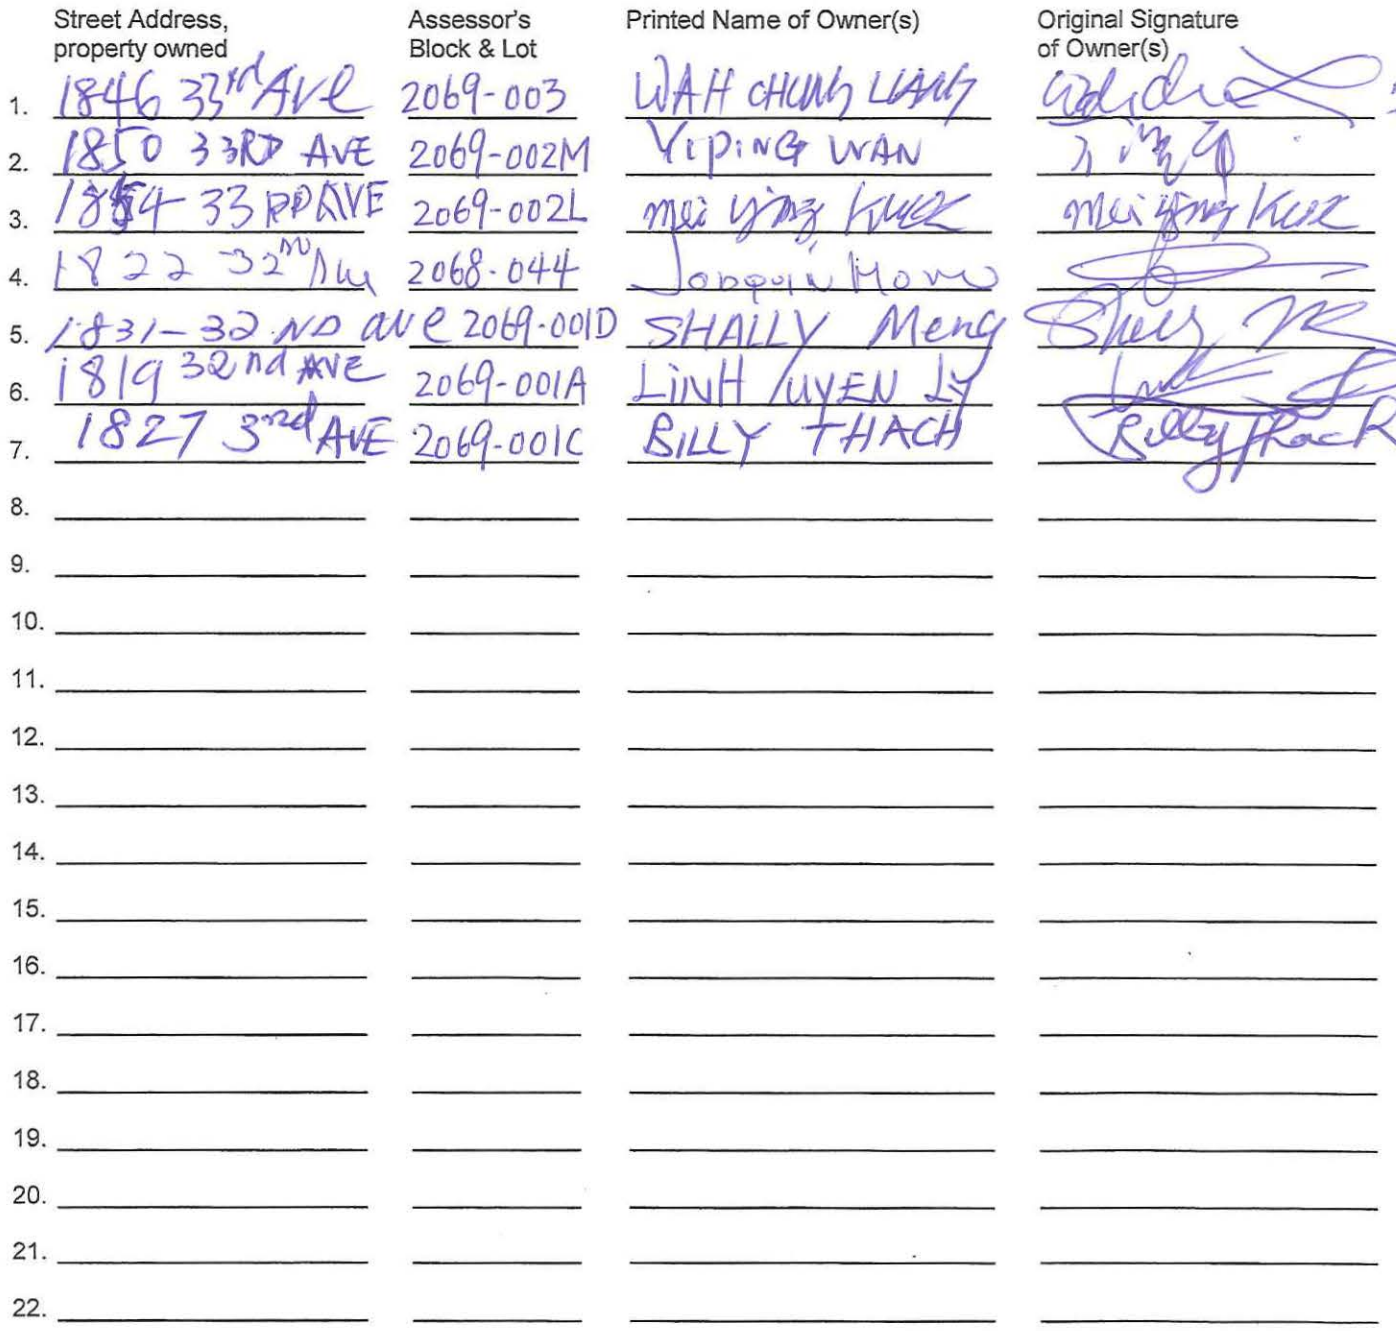 Street Address, Assessor's Printed Name of Owner(s) Original Signature
property owned Block & Lot of Owner(s)
1. 1846 33rd AVE 2069-003 WAH CHUNG LIANG
2. 1850 33RD AVE 2069-002M YIPING WAN
3. 1854 33RD AVE 2069-002L mei ying KUCK mei ying KUCK
4. 1822 32ND Ave 2068-044 Joaquin
5. 1831-32 ND ave 2069-001D SHALLY Meng
6. 1819 32nd AVE 2069-001A LINH UYEN LY
7. 1827 3nd AVE 2069-001C BILLY THACH Billy Thach
8.
9.
10.
11.
12.
13.
14.
15.
16.
17.
18.
19.
20.
21.
22.